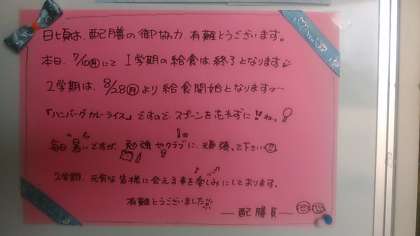 日頃は、配膳の御協力 有難とうございます。
本日、7/10(月)にて 1学期の給食は終了となります
2学期は、8/28(月)より給食開始となります〜
「ハンバーグカレーライス」ですので スプーンを忘れずに!ね。
毎日暑いですが、勉強やクラブに、頑張って下さい
2学期、元気な皆様に会える事を楽しみにしております。
有難とうございました
―配膳員―